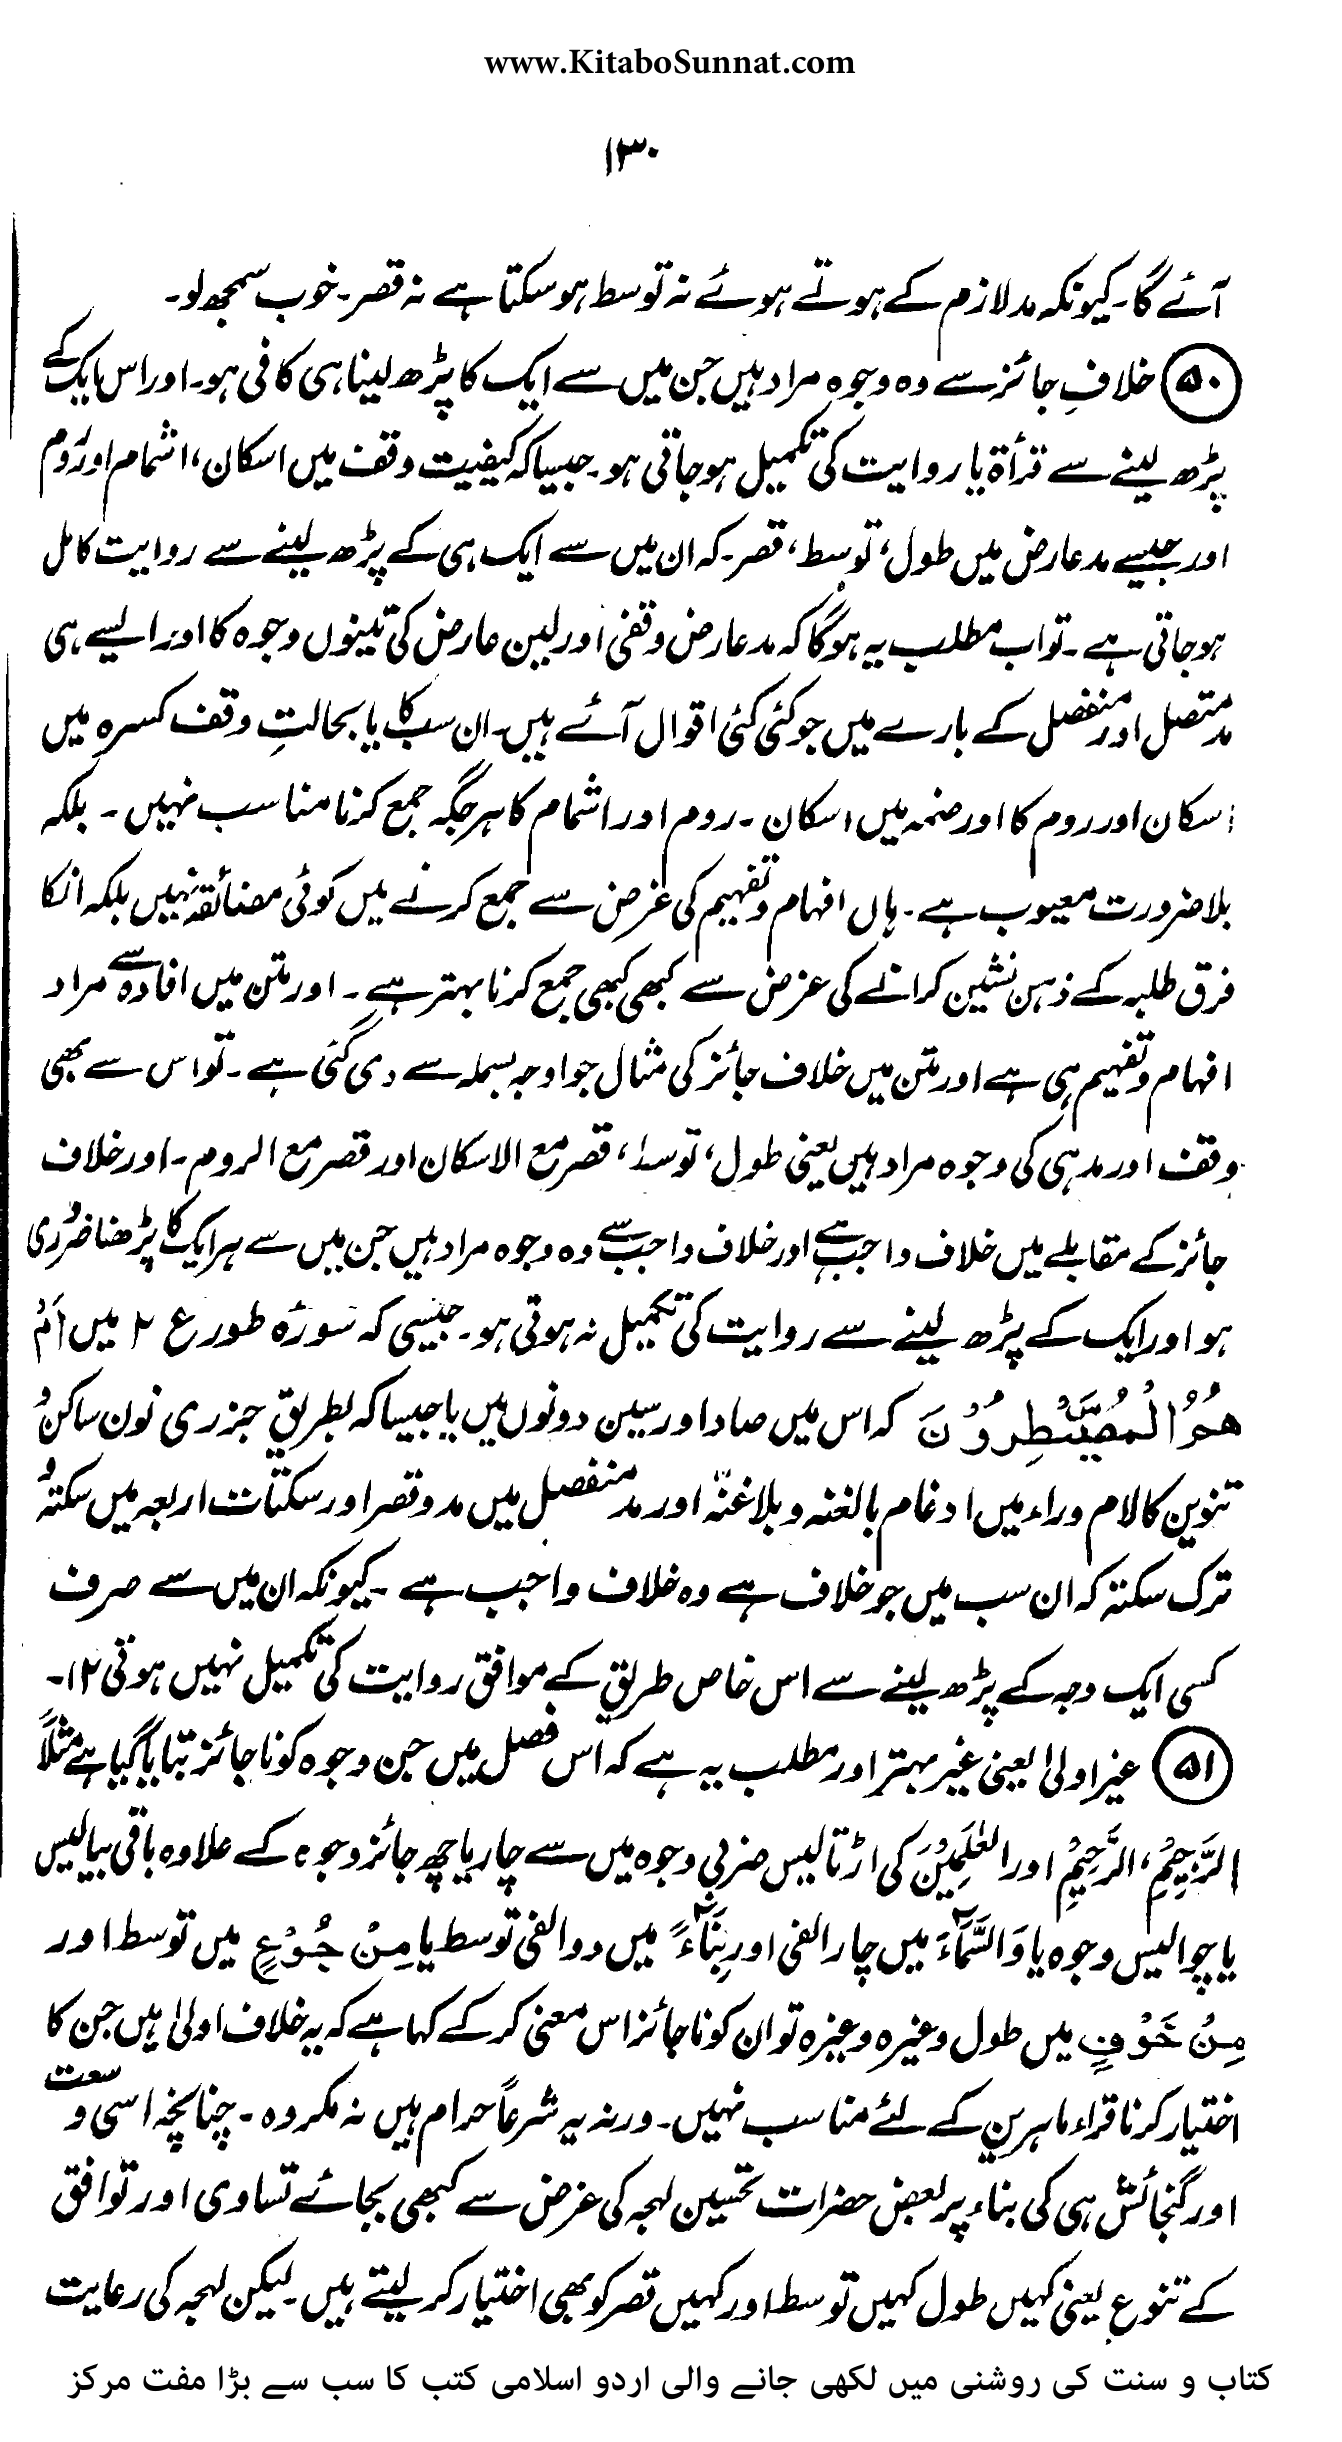 www.KitaboSunnat.com
۱۳۰
آئے گا۔ کیونکہ مد لازم کے ہوتے ہوئے نہ توسط ہو سکتا ہے نہ قصر۔ خوب سمجھ لو۔
۵۰ خلافِ جائز سے وہ وجوہ مراد ہیں جن میں سے ایک کا پڑھ لینا ہی کافی ہو۔ اور اس ایک کے
پڑھ لینے سے قرأۃ یا روایت کی تکمیل ہو جاتی ہو۔ جیسا کہ کیفیت وقف میں اسکان، اشمام اور رَوم
اور جیسے مد عارض میں طول، توسط، قصر۔ کہ ان میں سے ایک ہی کے پڑھ لینے سے روایت کامل
ہو جاتی ہے۔ تو اب مطلب یہ ہوگا کہ مد عارض وقفی اور لین عارض کی تینوں وجوہ کا اور ایسے ہی
مد متصل اور منفصل کے بارے میں جو کئی کئی اقوال آئے ہیں۔ ان سب کا یا بحالتِ وقف کسرہ میں
اسکان اور روم کا اور ضمہ میں اسکان۔ روم اور اشمام کا ہر جگہ جمع کرنا مناسب نہیں۔ بلکہ
بلا ضرورت معیوب ہے۔ ہاں افہام و تفہیم کی غرض سے جمع کرنے میں کوئی مضائقہ نہیں بلکہ انکا
فرق طلبہ کے ذہن نشین کرانے کی غرض سے کبھی کبھی جمع کرنا بہتر ہے۔ اور متن میں افادہ سے مراد
افہام و تفہیم ہی ہے اور متن میں خلاف جائز کی مثال جو اوجہ بسملہ سے دی گئی ہے۔ تو اس سے بھی
وقف اور مد ہی کی وجوہ مراد ہیں یعنی طول، توسط، قصر مع الاسکان اور قصر مع الروم۔ اور خلاف
جائز کے مقابلے میں خلاف واجب ہے اور خلاف واجب سے وہ وجوہ مراد ہیں جن میں سے ہر ایک کا پڑھنا ضروری
ہو اور ایک کے پڑھ لینے سے روایت کی تکمیل نہ ہوتی ہو۔ جیسی کہ سورۂ طور ع ۲ میں اَمْ
هُمُ الْمُصَۜيْطِرُوْنَ کہ اس میں صاد اور سین دونوں ہیں یا جیسا کہ بطریقِ جزری نون ساکن و
تنوین کا لام و راء میں ادغام بالغنہ و بلا غنّہ اور مد منفصل میں مد و قصر اور سکتات اربعہ میں سکتہ و
ترک سکتہ کہ ان سب میں جو خلاف ہے وہ خلاف واجب ہے۔ کیونکہ ان میں سے صرف
کسی ایک وجہ کے پڑھ لینے سے اس خاص طریق کے موافق روایت کی تکمیل نہیں ہوتی ۱۲۔
۵۱ غیر اولیٰ یعنی غیر بہتر اور مطلب یہ ہے کہ اس فصل میں جن وجوہ کو ناجائز بتایا گیا ہے مثلاً
الرَّجِيْمِ، الرَّحِيْمِ اور العٰلَمِيْنَ کی اڑتالیس ضربی وجوہ میں سے چار یا چھ جائز وجوہ کے علاوہ باقی بیالیس
یا چوالیس وجوہ یا وَالسَّمَآءَ میں چار الفی اور بِنَآءً میں دو الفی توسط یا مِنْ جُوْعٍ میں توسط اور
مِنْ خَوْفٍ میں طول وغیرہ وغیرہ تو ان کو ناجائز اس معنی کر کے کہا ہے کہ یہ خلاف اولیٰ ہیں جن کا
اختیار کرنا قراء ماہرین کے لئے مناسب نہیں۔ ورنہ یہ شرعاً حرام ہیں نہ مکروہ۔ چنانچہ اسی وسعت
اور گنجائش ہی کی بناء پر بعض حضرات تحسین لہجہ کی غرض سے کبھی بجائے تساوی اور توافق
کے تنوع یعنی کہیں طول کہیں توسط اور کہیں قصر کو بھی اختیار کر لیتے ہیں۔ لیکن لہجہ کی رعایت
کتاب و سنت کی روشنی میں لکھی جانے والی اردو اسلامی کتب کا سب سے بڑا مفت مرکز